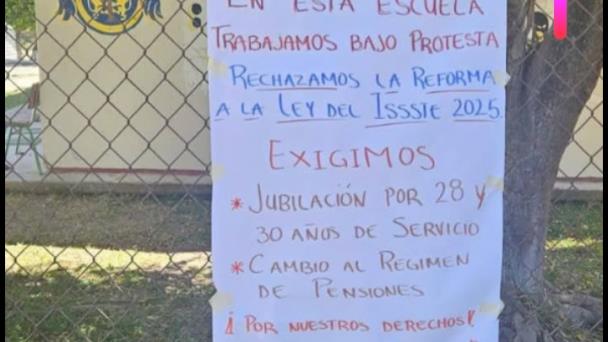 EN ESTA ESCUELA
TRABAJAMOS BAJO PROTESTA
RECHAZAMOS LA REFORMA
A LA LEY DEL ISSSTE 2025
EXIGIMOS
* JUBILACIÓN POR 28 Y
30 AÑOS DE SERVICIO
* CAMBIO AL REGIMEN
DE PENSIONES
¡POR NUESTROS DERECHOS!